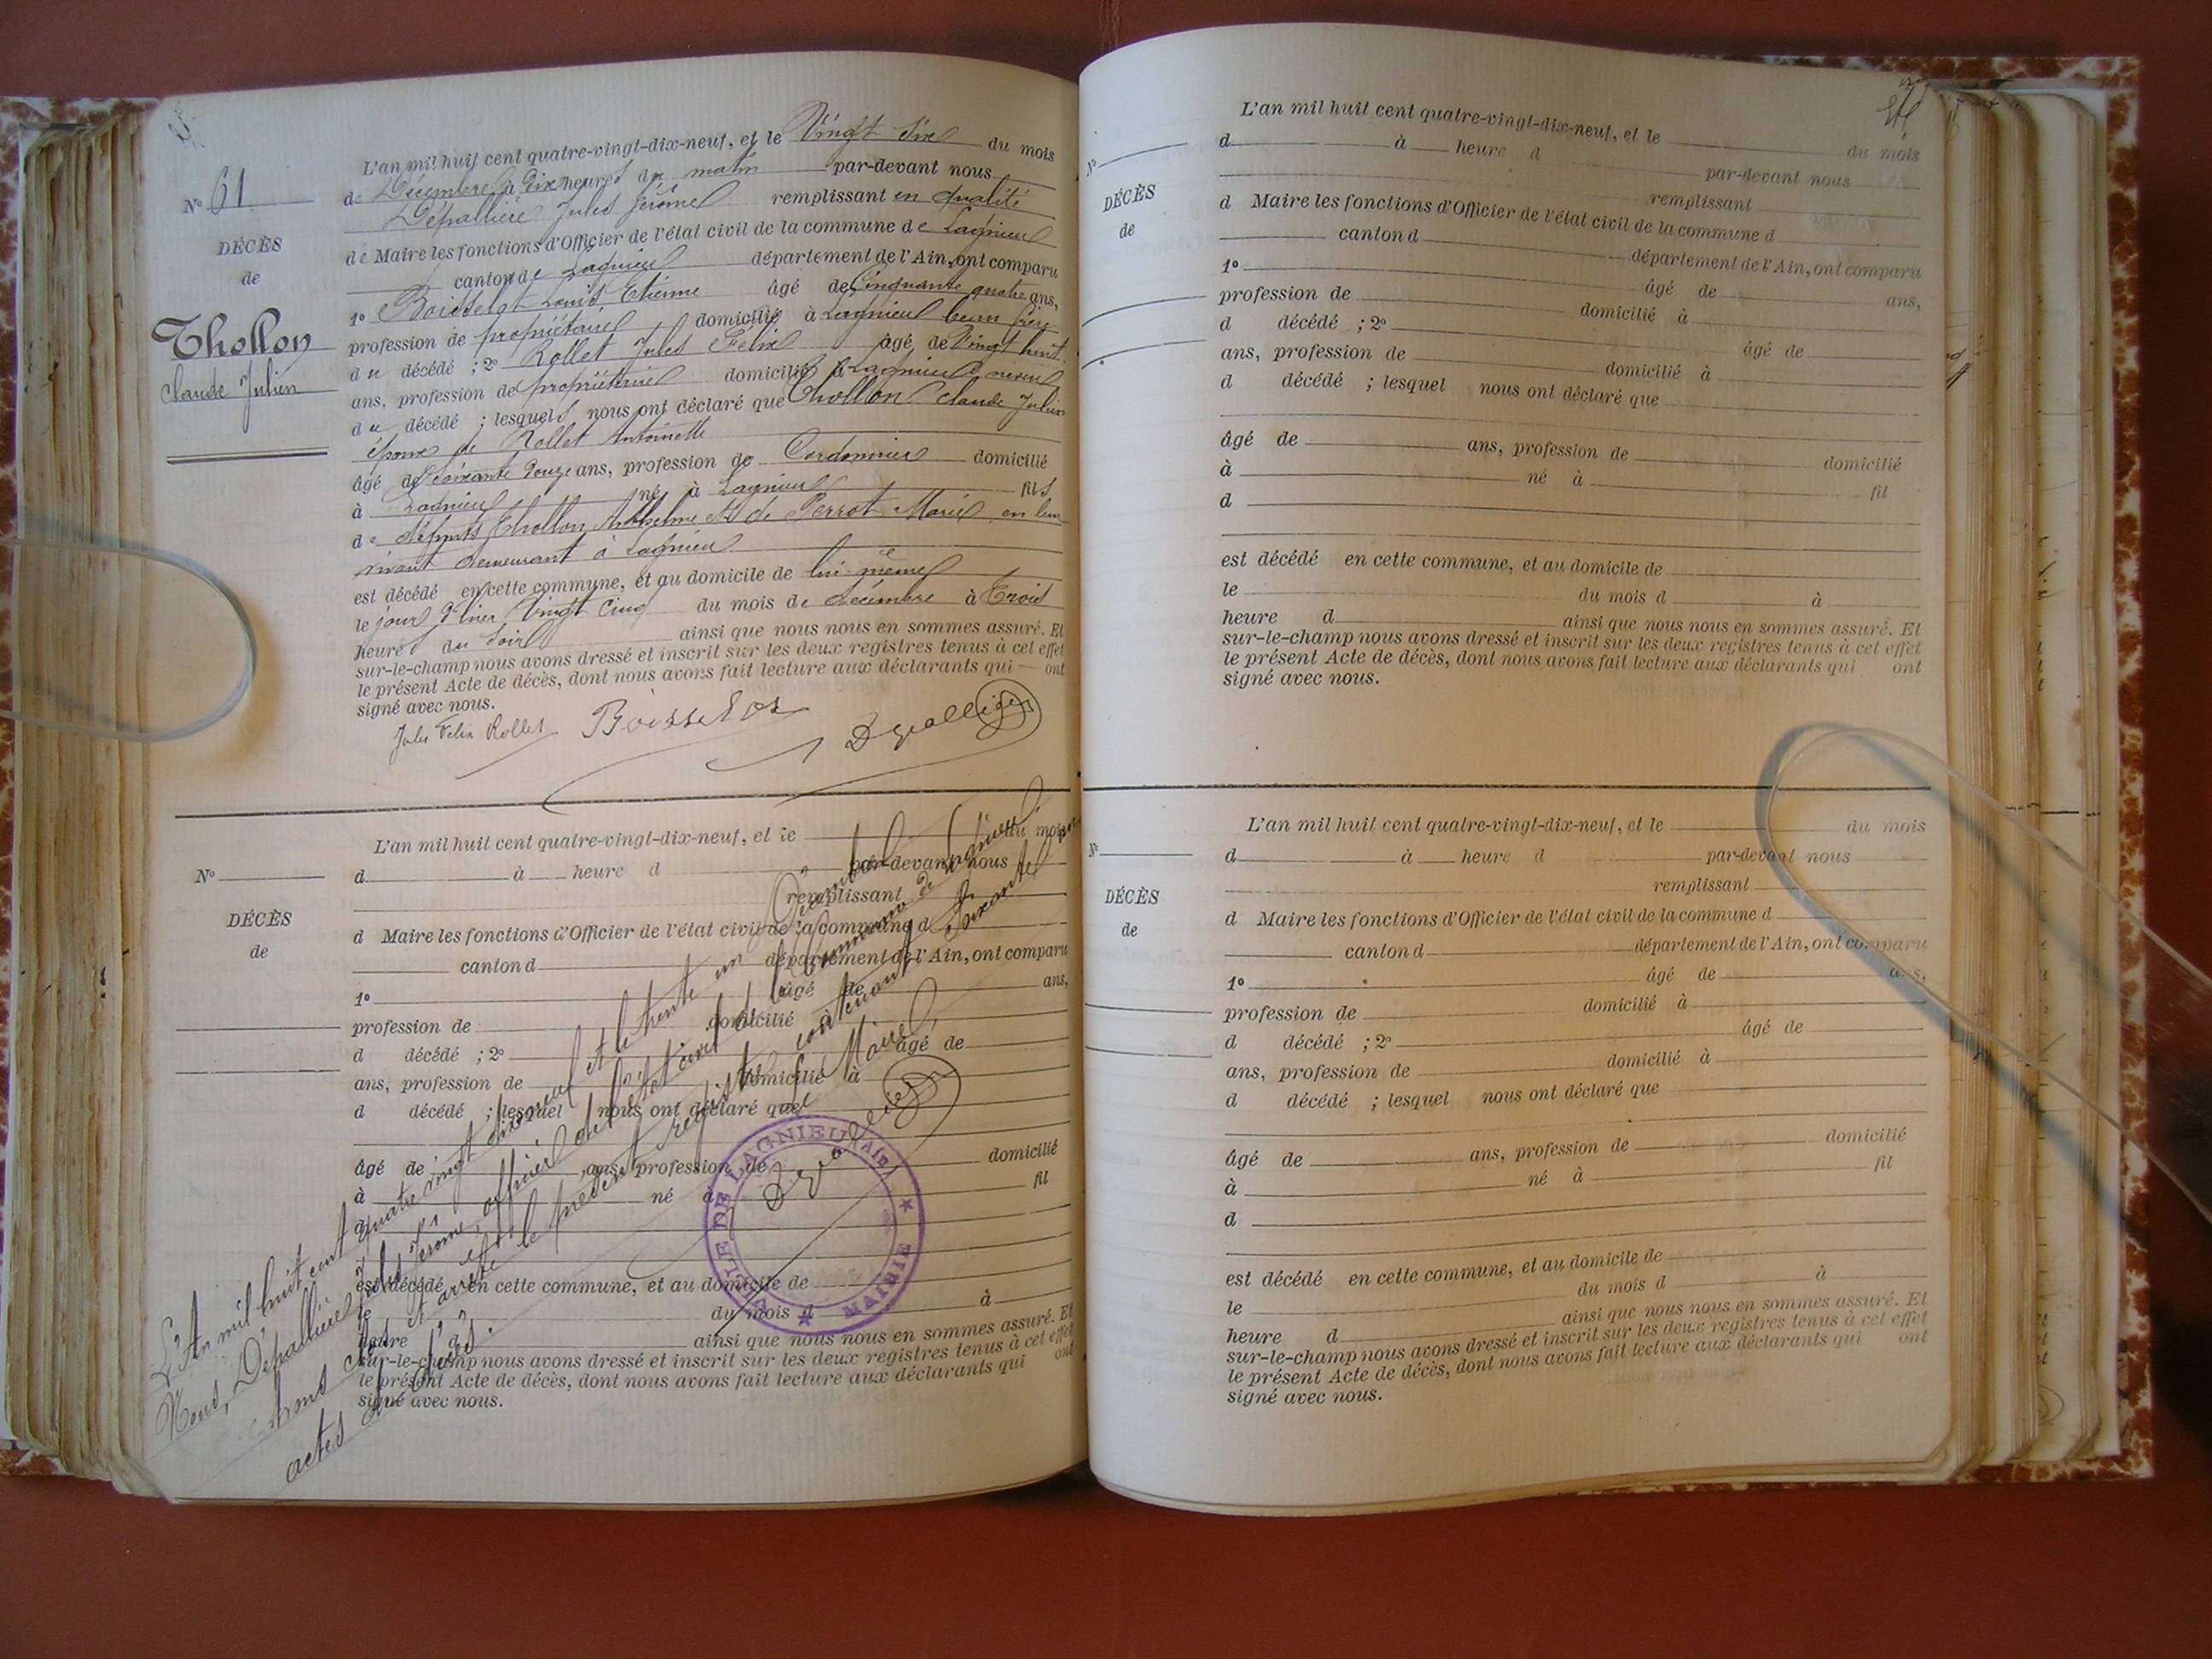 N° 61
DÉCÈS
de
Thollon
Claude Julien
L'an mil huit cent quatre-vingt-dix-neuf, et le Vingt Six du mois
de Décembre à Dix heures du matin par-devant nous
Dépallière Jules Jérôme remplissant en qualité
de Maire les fonctions d'Officier de l'état civil de la commune de Lagnieu
canton de Lagnieu département de l'Ain, ont comparu
1° Boisserot Louis Etienne âgé de Cinquante quatre ans,
profession de propriétaire domicilié à Lagnieu beau frère
du décédé ; 2° Rollet Jules Félix âgé de Vingt huit
ans, profession de propriétaire domicilié à Lagnieu neveu
du décédé ; lesquels nous ont déclaré que Thollon Claude Julien
époux de Rollet Antoinette
âgé de Soixante Douze ans, profession de Cordonnier domicilié
à Lagnieu né à Lagnieu fils
de défunts Thollon Anthelme et de Perrot Marie en leur
vivant demeurant à Lagnieu
est décédé en cette commune, et au domicile de lui-même
le jour d'hier Vingt Cinq du mois de décembre à Trois
heures du soir ainsi que nous nous en sommes assuré. Et
sur-le-champ nous avons dressé et inscrit sur les deux registres tenus à cet effet
le présent Acte de décès, dont nous avons fait lecture aux déclarants qui ont
signé avec nous.
Jules Felix Rollet Depallière
N°
DÉCÈS
de
L'an mil huit cent quatre-vingt-dix-neuf, et le du mois
d à heure d par-devant nous
remplissant
d Maire les fonctions d'Officier de l'état civil de la commune d
canton d département de l'Ain, ont comparu
1° âgé de ans,
profession de domicilié à
d décédé ; 2° âgé de
ans, profession de domicilié à
d décédé ; lesquel nous ont déclaré que
âgé de ans, profession de domicilié
à né à fil
d
est décédé en cette commune, et au domicile de
le du mois d à
heure d ainsi que nous nous en sommes assuré. Et
sur-le-champ nous avons dressé et inscrit sur les deux registres tenus à cet effet
le présent Acte de décès, dont nous avons fait lecture aux déclarants qui ont
signé avec nous.
L'An mil huit cent quatre vingt dix neuf et le trente un Décembre
Nous, Dépallière Jules Jérôme, officier de l'état civil de la Commune de Lagnieu
avons clos et arrêté le présent registre contenant Soixante un
actes de décès.
Le Maire,
Depallière
VILLE DE LAGNIEU (Ain) ★ MAIRIE ★
N°
DÉCÈS
de
L'an mil huit cent quatre-vingt-dix-neuf, et le du mois
d à heure d par-devant nous
remplissant
d Maire les fonctions d'Officier de l'état civil de la commune d
canton d département de l'Ain, ont comparu
1° âgé de ans,
profession de domicilié à
d décédé ; 2° âgé de
ans, profession de domicilié à
d décédé ; lesquel nous ont déclaré que
âgé de ans, profession de domicilié
à né à fil
d
est décédé en cette commune, et au domicile de
le du mois d à
heure d ainsi que nous nous en sommes assuré. Et
sur-le-champ nous avons dressé et inscrit sur les deux registres tenus à cet effet
le présent Acte de décès, dont nous avons fait lecture aux déclarants qui ont
signé avec nous.
N°
DÉCÈS
de
L'an mil huit cent quatre-vingt-dix-neuf, et le du mois
d à heure d par-devant nous
remplissant
d Maire les fonctions d'Officier de l'état civil de la commune d
canton d département de l'Ain, ont comparu
1° âgé de ans,
profession de domicilié à
d décédé ; 2° âgé de
ans, profession de domicilié à
d décédé ; lesquel nous ont déclaré que
âgé de ans, profession de domicilié
à né à fil
d
est décédé en cette commune, et au domicile de
le du mois d à
heure d ainsi que nous nous en sommes assuré. Et
sur-le-champ nous avons dressé et inscrit sur les deux registres tenus à cet effet
le présent Acte de décès, dont nous avons fait lecture aux déclarants qui ont
signé avec nous.